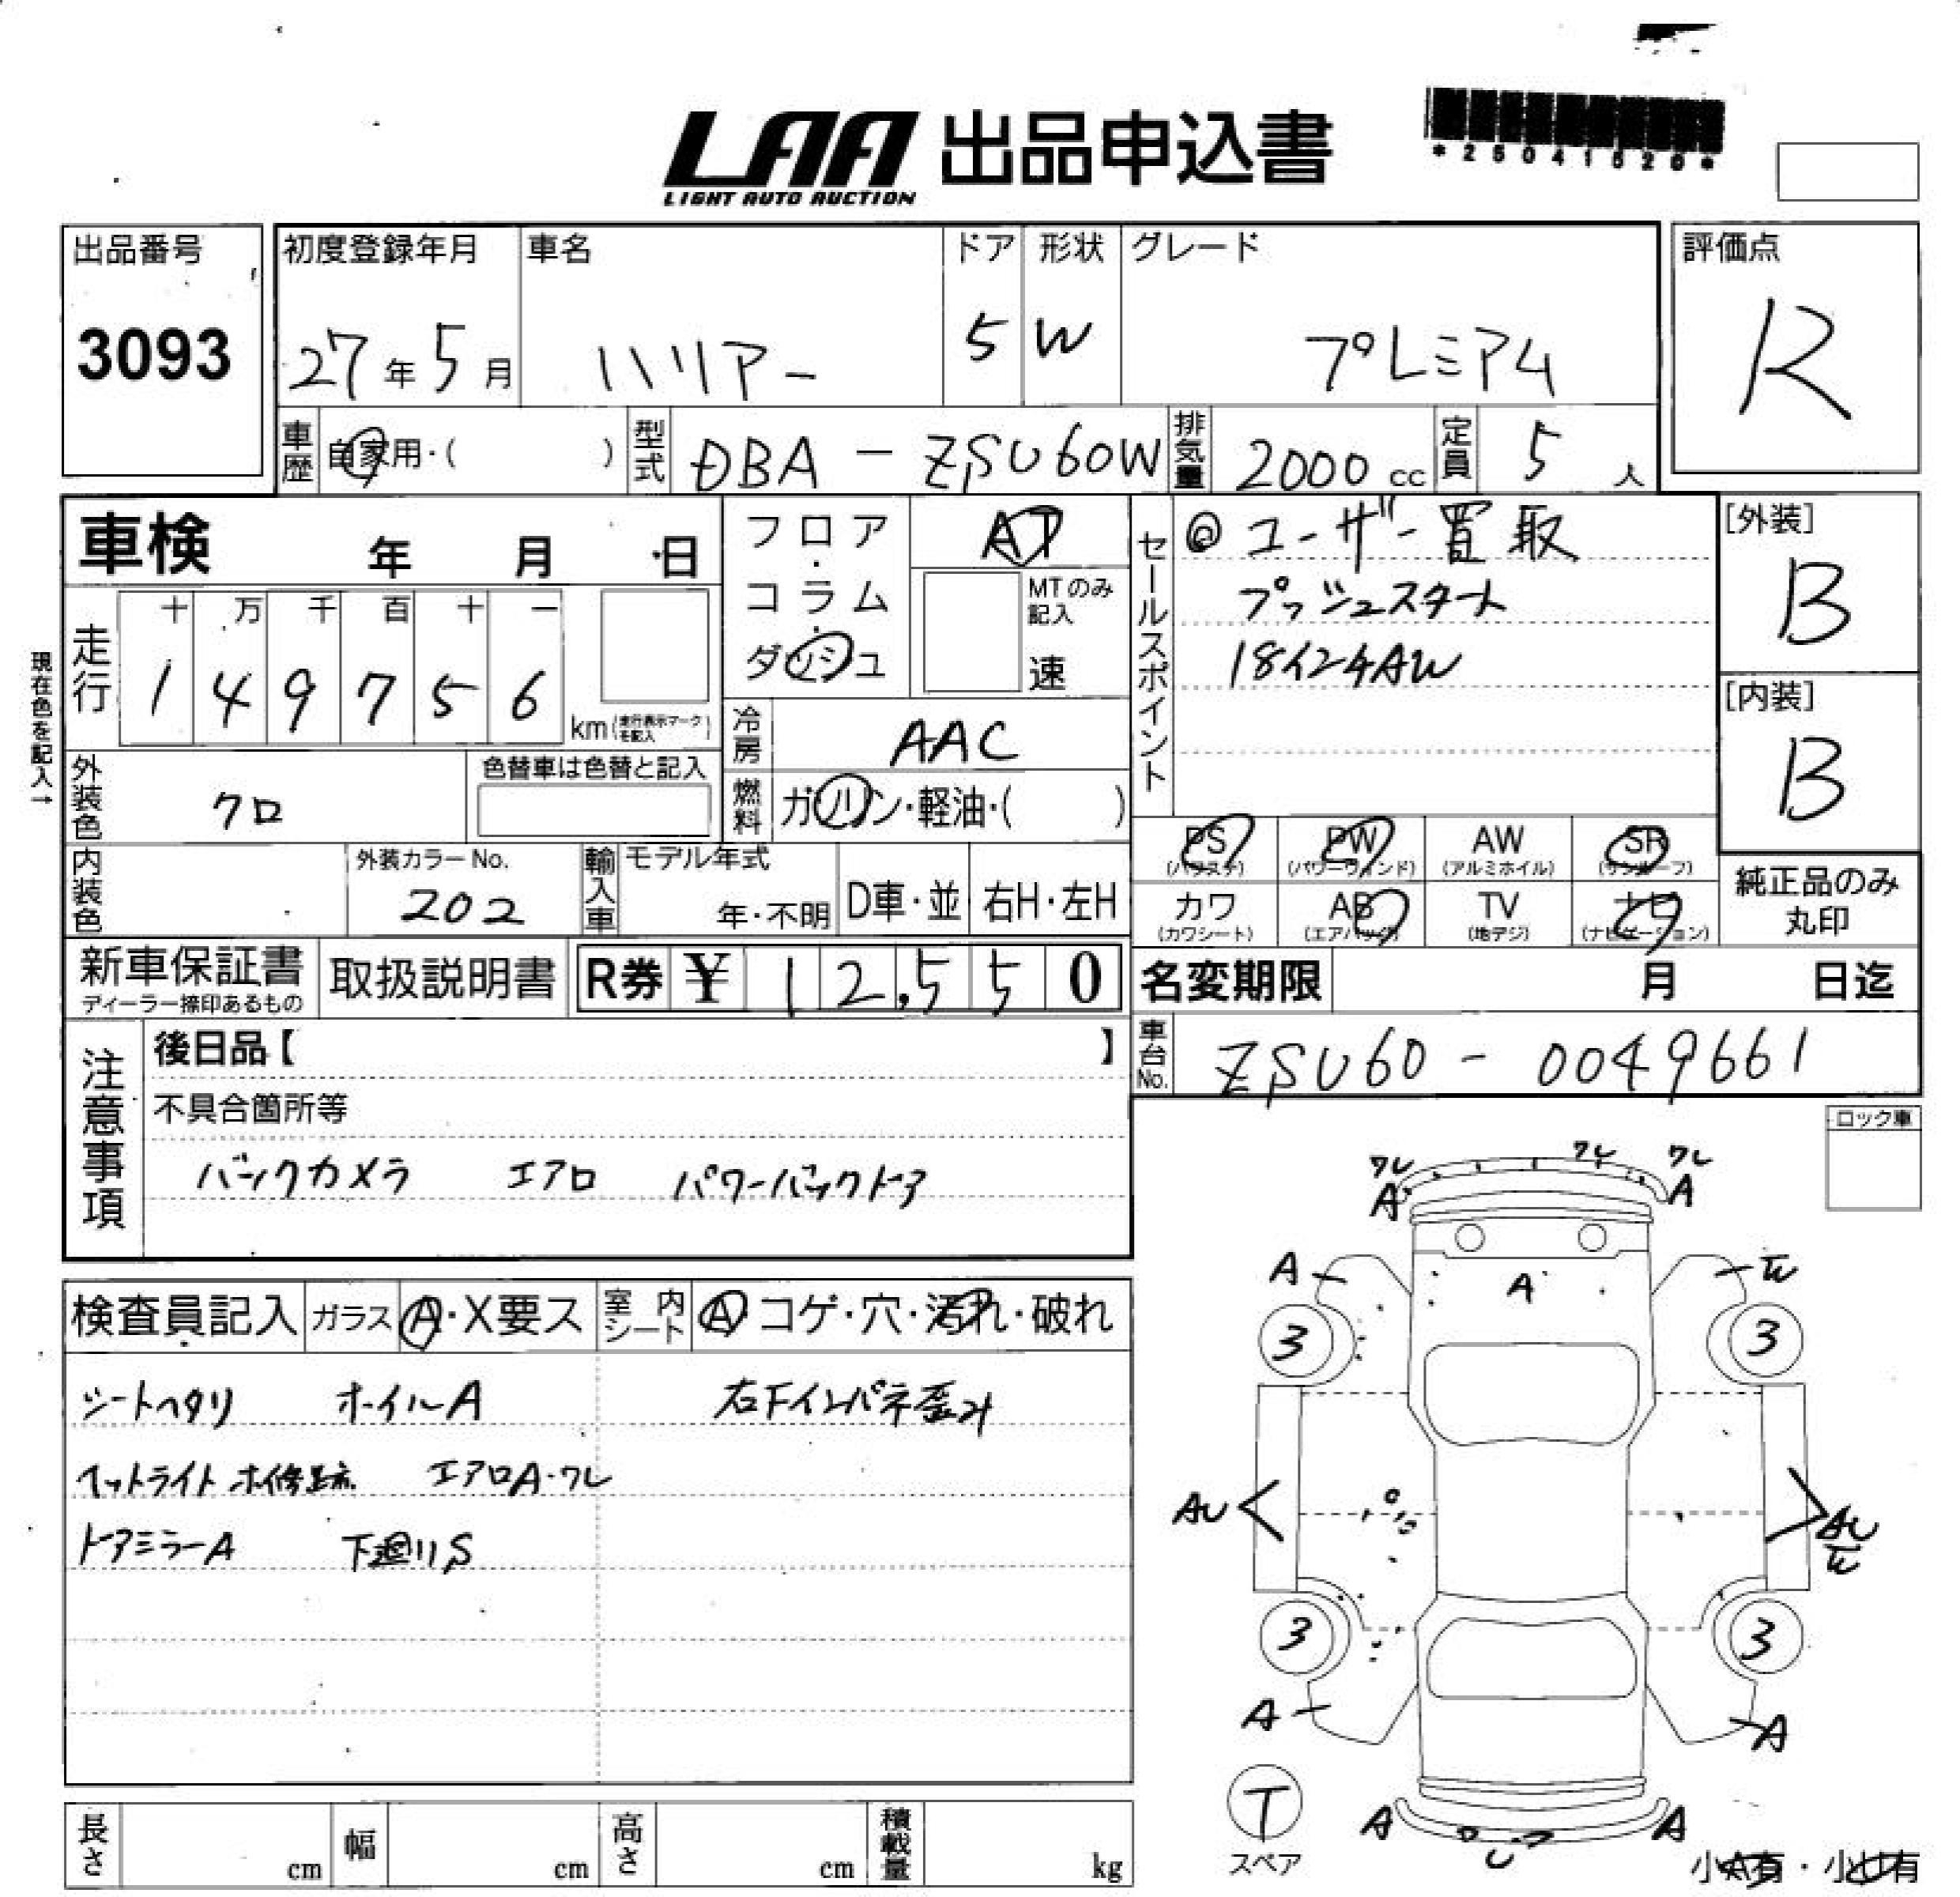 LAA 出品申込書
LIGHT AUTO AUCTION
*25041620*
出品番号
3093
初度登録年月
27年5月
車名
ハリアー
ドア
5
形状
W
グレード
プレミアム
評価点
R
車歴 自家用・( )
型式 DBA-ZSU60W
排気量 2000cc
定員 5人
車検 年 月 日
走行
十 万 千 百 十 一
1 4 9 7 5 6
km(走行表示マークを記入)
現在色を記入→
外装色 クロ
色替車は色替と記入
内装色
外装カラーNo.
202
輸入車
モデル年式
年・不明
D車・並
右H・左H
フロア・コラム・ダッシュ
AT
MTのみ記入
速
冷房 AAC
燃料 ガソリン・軽油・( )
セールスポイント
◎ユーザー買取
プッシュスタート
18インチAW
[外装]
B
[内装]
B
PS(パワステ)
PW(パワーウィンド)
AW(アルミホイル)
SR(サンルーフ)
カワ(カワシート)
AB(エアバック)
TV(地デジ)
ナビ(ナビゲーション)
純正品のみ丸印
新車保証書
ディーラー捺印あるもの
取扱説明書
R券 ¥12,550
名変期限 月 日迄
車台No. ZSU60-0049661
注意事項
後日品【 】
不具合箇所等
バックカメラ エアロ パワーバックドア
ロック車
検査員記入
ガラス A・X要ス
室内シート A コゲ・穴・汚れ・破れ
シートヘタリ ホイルA 右Fインパネ歪み
ヘットライト ホ修跡 エアロA・ワレ
ドアミラーA 下廻りS
ワレ ワレ ワレ
A A
A A W
3 3
AU AU
W
3 3
A A
T
スペア
A A
U
小A有・小U有
長さ cm
幅 cm
高さ cm
積載量 kg